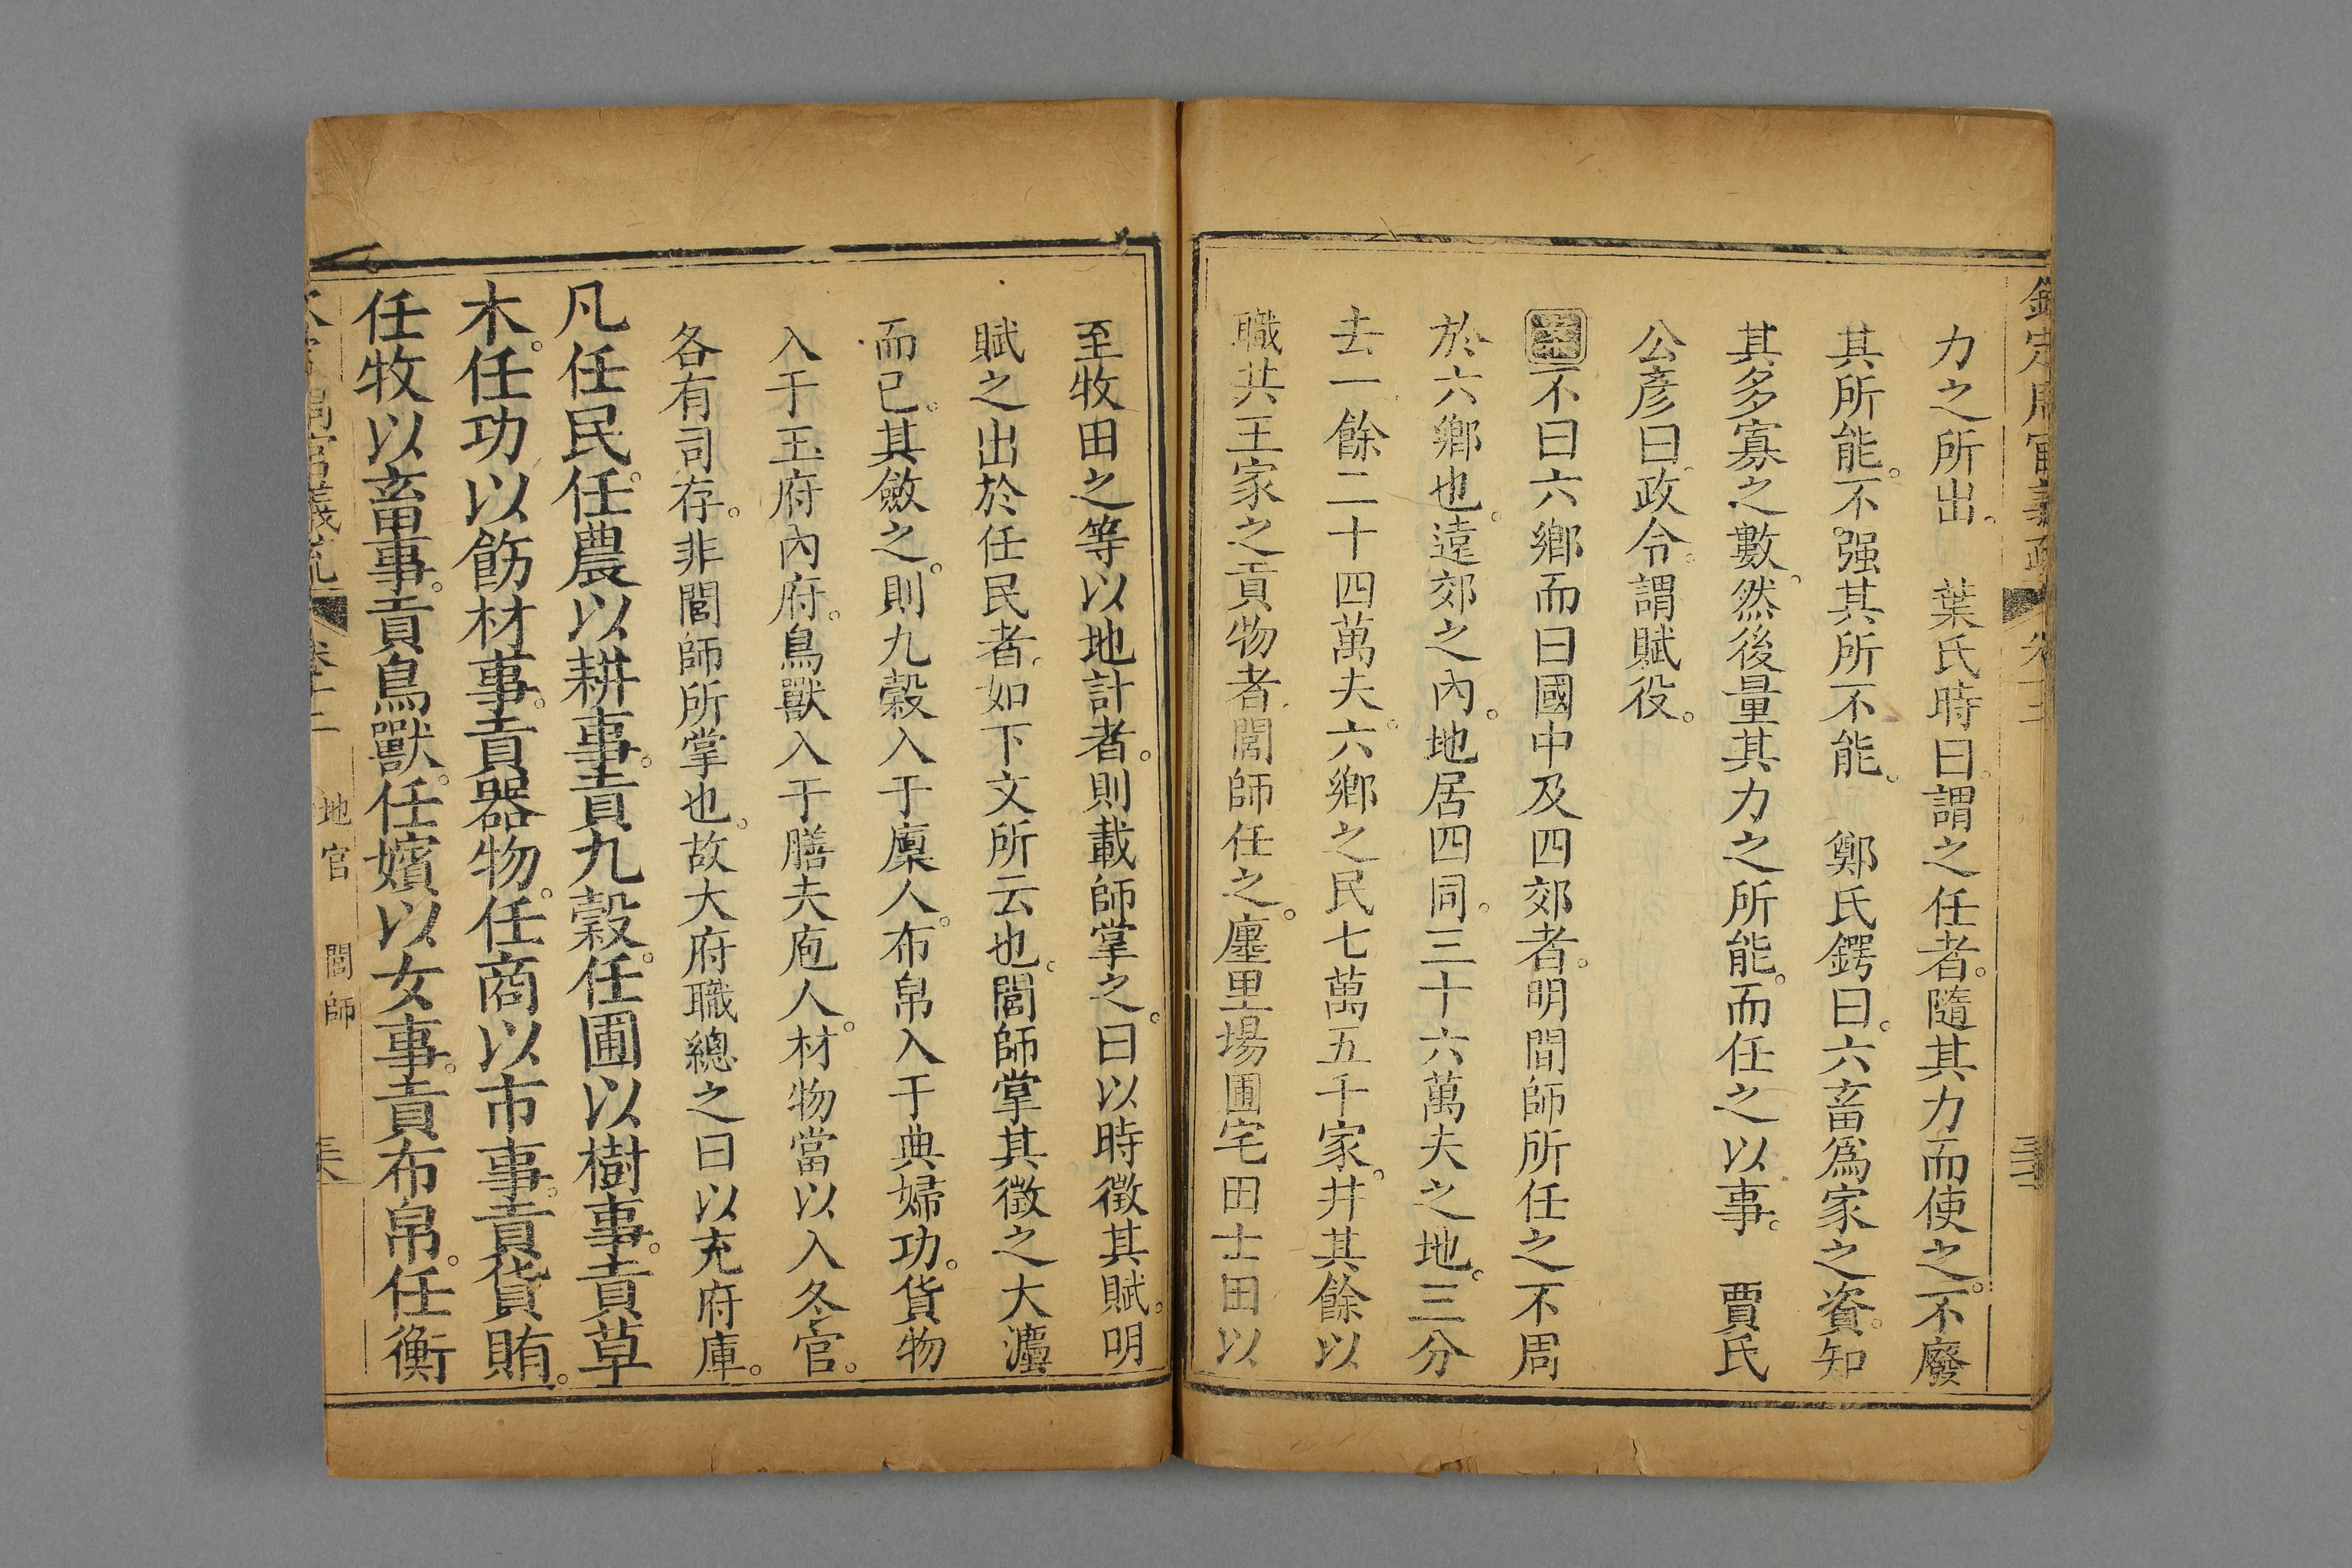 欽定周官義疏 卷十二
力之所出。 葉氏時曰。謂之任者。隨其力而使之。不廢
其所能。不强其所不能。 鄭氏鍔曰。六畜爲家之資。知
其多寡之數。然後量其力之所能。而任之以事。 賈氏
公彥曰。政令。謂賦役。
不曰六鄉而曰國中及四郊者。明閭師所任之不周
於六鄉也。遠郊之內。地居四同。三十六萬夫之地。三分
去一餘二十四萬夫。六鄉之民七萬五千家。幷其餘以
職共王家之貢物者閭師任之。廛里場圃宅田士田以
至牧田之等以地計者。則載師掌之。曰以時徵其賦。明
賦之出於任民者。如下文所云也。閭師掌其徵之大灋
而已。其斂之。則九穀入于廩人。布帛入于典婦功。貨物
入于玉府內府。鳥獸入于膳夫庖人。材物當以入冬官。
各有司存。非閭師所掌也。故大府職總之曰以充府庫。
凡任民。任農以耕事。貢九穀。任圃以樹事。貢草
木。任功以飭材事。貢器物。任商以市事。貢貨賄。
任牧以畜事。貢鳥獸。任嬪以女事。貢布帛。任衡
欽定周官義疏 卷十二 地官 閭師